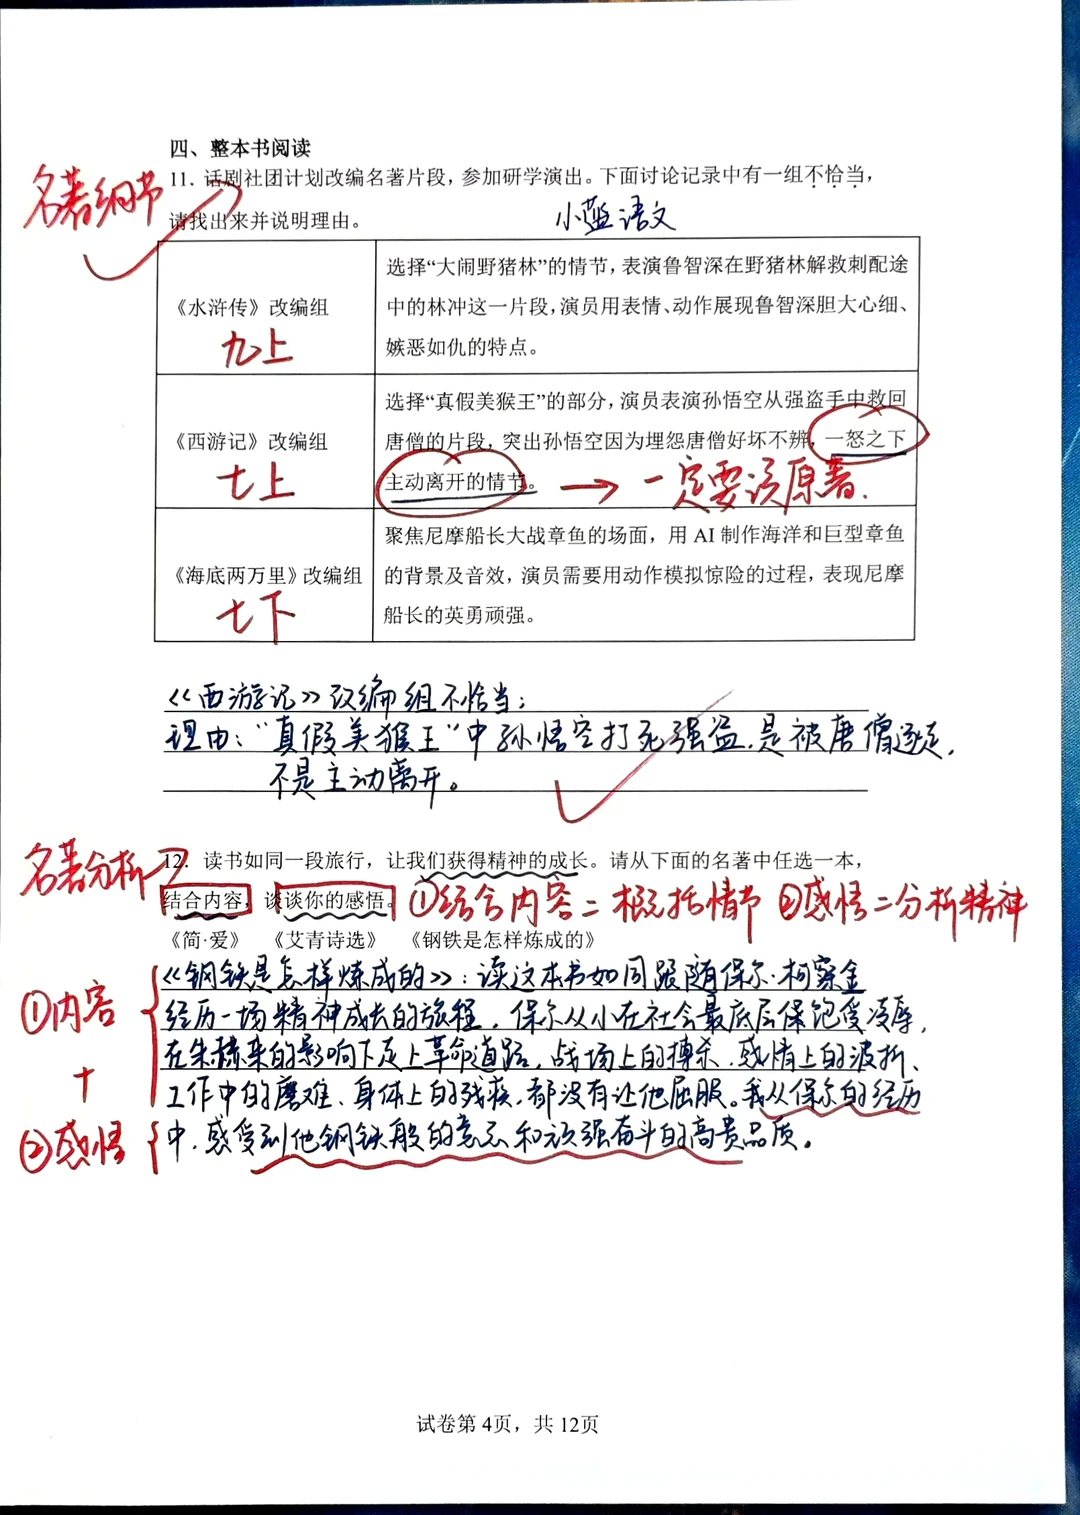 四、整本书阅读
名著细节
11. 话剧社团计划改编名著片段，参加研学演出。下面讨论记录中有一组不恰当，
请找出来并说明理由。
小蓝语文
《水浒传》改编组
九上
选择“大闹野猪林”的情节，表演鲁智深在野猪林解救刺配途
中的林冲这一片段，演员用表情、动作展现鲁智深胆大心细、
嫉恶如仇的特点。
《西游记》改编组
七上
选择“真假美猴王”的部分，演员表演孙悟空从强盗手中救回
唐僧的片段，突出孙悟空因为埋怨唐僧好坏不辨，一怒之下
主动离开的情节。
→一定要读原著.
《海底两万里》改编组
七下
聚焦尼摩船长大战章鱼的场面，用 AI 制作海洋和巨型章鱼
的背景及音效，演员需要用动作模拟惊险的过程，表现尼摩
船长的英勇顽强。
《西游记》改编组不恰当；
理由：“真假美猴王”中孙悟空打死强盗，是被唐僧逐走，
不是主动离开。
名著分析
12. 读书如同一段旅行，让我们获得精神的成长。请从下面的名著中任选一本，
结合内容，谈谈你的感悟。
①结合内容=概括情节 ②感悟=分析精神
《简·爱》 《艾青诗选》 《钢铁是怎样炼成的》
①内容
+
②感悟
《钢铁是怎样炼成的》：读这本书如同跟随保尔·柯察金
经历一场精神成长的旅程，保尔从小在社会最底层保饱受凌辱，
在朱赫来的影响下走上革命道路，战场上的搏杀、感情上的波折、
工作中的磨难、身体上的残疾，都没有让他屈服。我从保尔的经历
中，感受到他钢铁般的意志和顽强奋斗的高贵品质。
试卷第 4页，共 12页